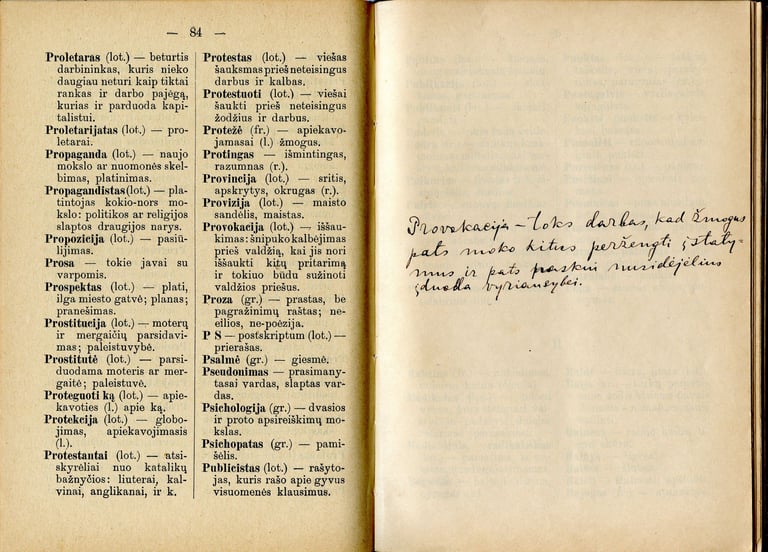 — 84 —
Proletaras (lot.) — beturtis
darbininkas, kuris nieko
daugiau neturi kaip tiktai
rankas ir darbo pajėgą,
kurias ir parduoda kapi-
talistui.
Proletarijatas (lot.) — pro-
letarai.
Propaganda (lot.) — naujo
mokslo ar nuomonės skel-
bimas, platinimas.
Propagandistas(lot.) — pla-
tintojas kokio-nors mo-
kslo: politikos ar religijos
slaptos draugijos narys.
Propozicija (lot.) — pasiū-
lijimas.
Prosa — tokie javai su
varpomis.
Prospektas (lot.) — plati,
ilga miesto gatvė; planas;
pranešimas.
Prostitucija (lot.) — moterų
ir mergaičių parsidavi-
mas; paleistuvybė.
Prostitutė (lot.) — parsi-
duodama moteris ar mer-
gaitė; paleistuvė.
Proteguoti ką (lot.) — apie-
kavoties (l.) apie ką.
Protekcija (lot.) — globo-
jimas, apiekavojimasis
(l.).
Protestantai (lot.) — atsi-
skyrėliai nuo katalikų
bažnyčios: liuterai, kal-
vinai, anglikanai, ir k.
Protestas (lot.) — viešas
šauksmas prieš neteisingus
darbus ir kalbas.
Protestuoti (lot.) — viešai
šaukti prieš neteisingus
žodžius ir darbus.
Protežė (fr.) — apiekavo-
jamasai (l.) žmogus.
Protingas — išmintingas,
razumnas (r.).
Provincija (lot.) — sritis,
apskrytys, okrugas (r.).
Provizija (lot.) — maisto
sandėlis, maistas.
Provokacija (lot.) — iššau-
kimas: šnipuko kalbėjimas
prieš valdžią, kai jis nori
iššaukti kitų pritarimą
ir tokiuo būdu sužinoti
valdžios priešus.
Proza (gr.) — prastas, be
pagražinimų raštas; ne-
eilios, ne-poėzija.
P S — postskriptum (lot.) —
prierašas.
Psalmė (gr.) — giesmė.
Pseudonimas — prasimany-
tasai vardas, slaptas var-
das.
Psichologija (gr.) — dvasios
ir proto apsireiškimų mo-
kslas.
Psichopatas (gr.) — pami-
šėlis.
Publicistas (lot.) — rašyto-
jas, kuris rašo apie gyvus
visuomenės klausimus.
Provokacija – toks darbas, kad žmogus
pats moko kitus peržengti įstaty-
mus ir pats paskui nusidėjėlius
įduoda vyriausybei.